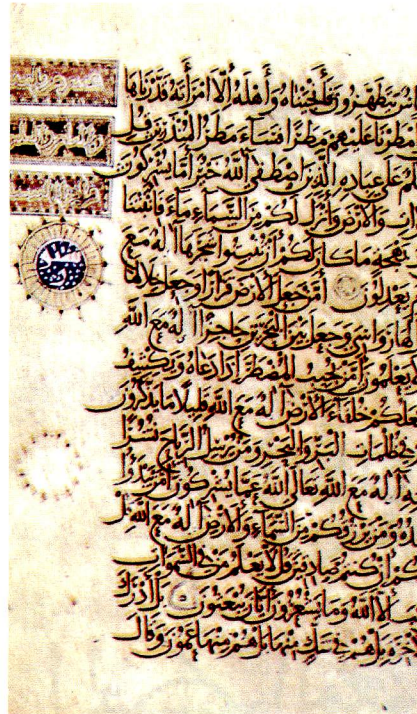 اس يتطهرون فأنجيناه وأهله إلا امرأته قدرناها
مطرنا عليهم مطرا فساء مطر المنذرين قل
م على عباده الذين اصطفى آلله خير أما يشركون
ات والأرض وأنزل لكم من السماء ماء فأنبتنا
بهجة ما كان لكم أن تنبتوا شجرها أإله مع
يعدلون أمن جعل الأرض قرارا وجعل خلالها
لها رواسي وجعل بين البحرين حاجزا أإله مع الله
لا يعلمون أمن يجيب المضطر إذا دعاه ويكشف
جعلكم خلفاء الأرض أإله مع الله قليلا ما يذكرون
في ظلمات البر والبحر ومن يرسل الرياح نشرا
أإله مع الله تعالى الله عما يشركون أمن يبدأ
ده ومن يرزقكم من السماء والأرض أإله مع الله قل
كم إن كنتم صادقين قل لا يعلم من في السموات
ب إلا الله وما يشعرون أيان يبعثون بل ادارك
خرة بل هم في شك منها بل هم منها عمون وقال